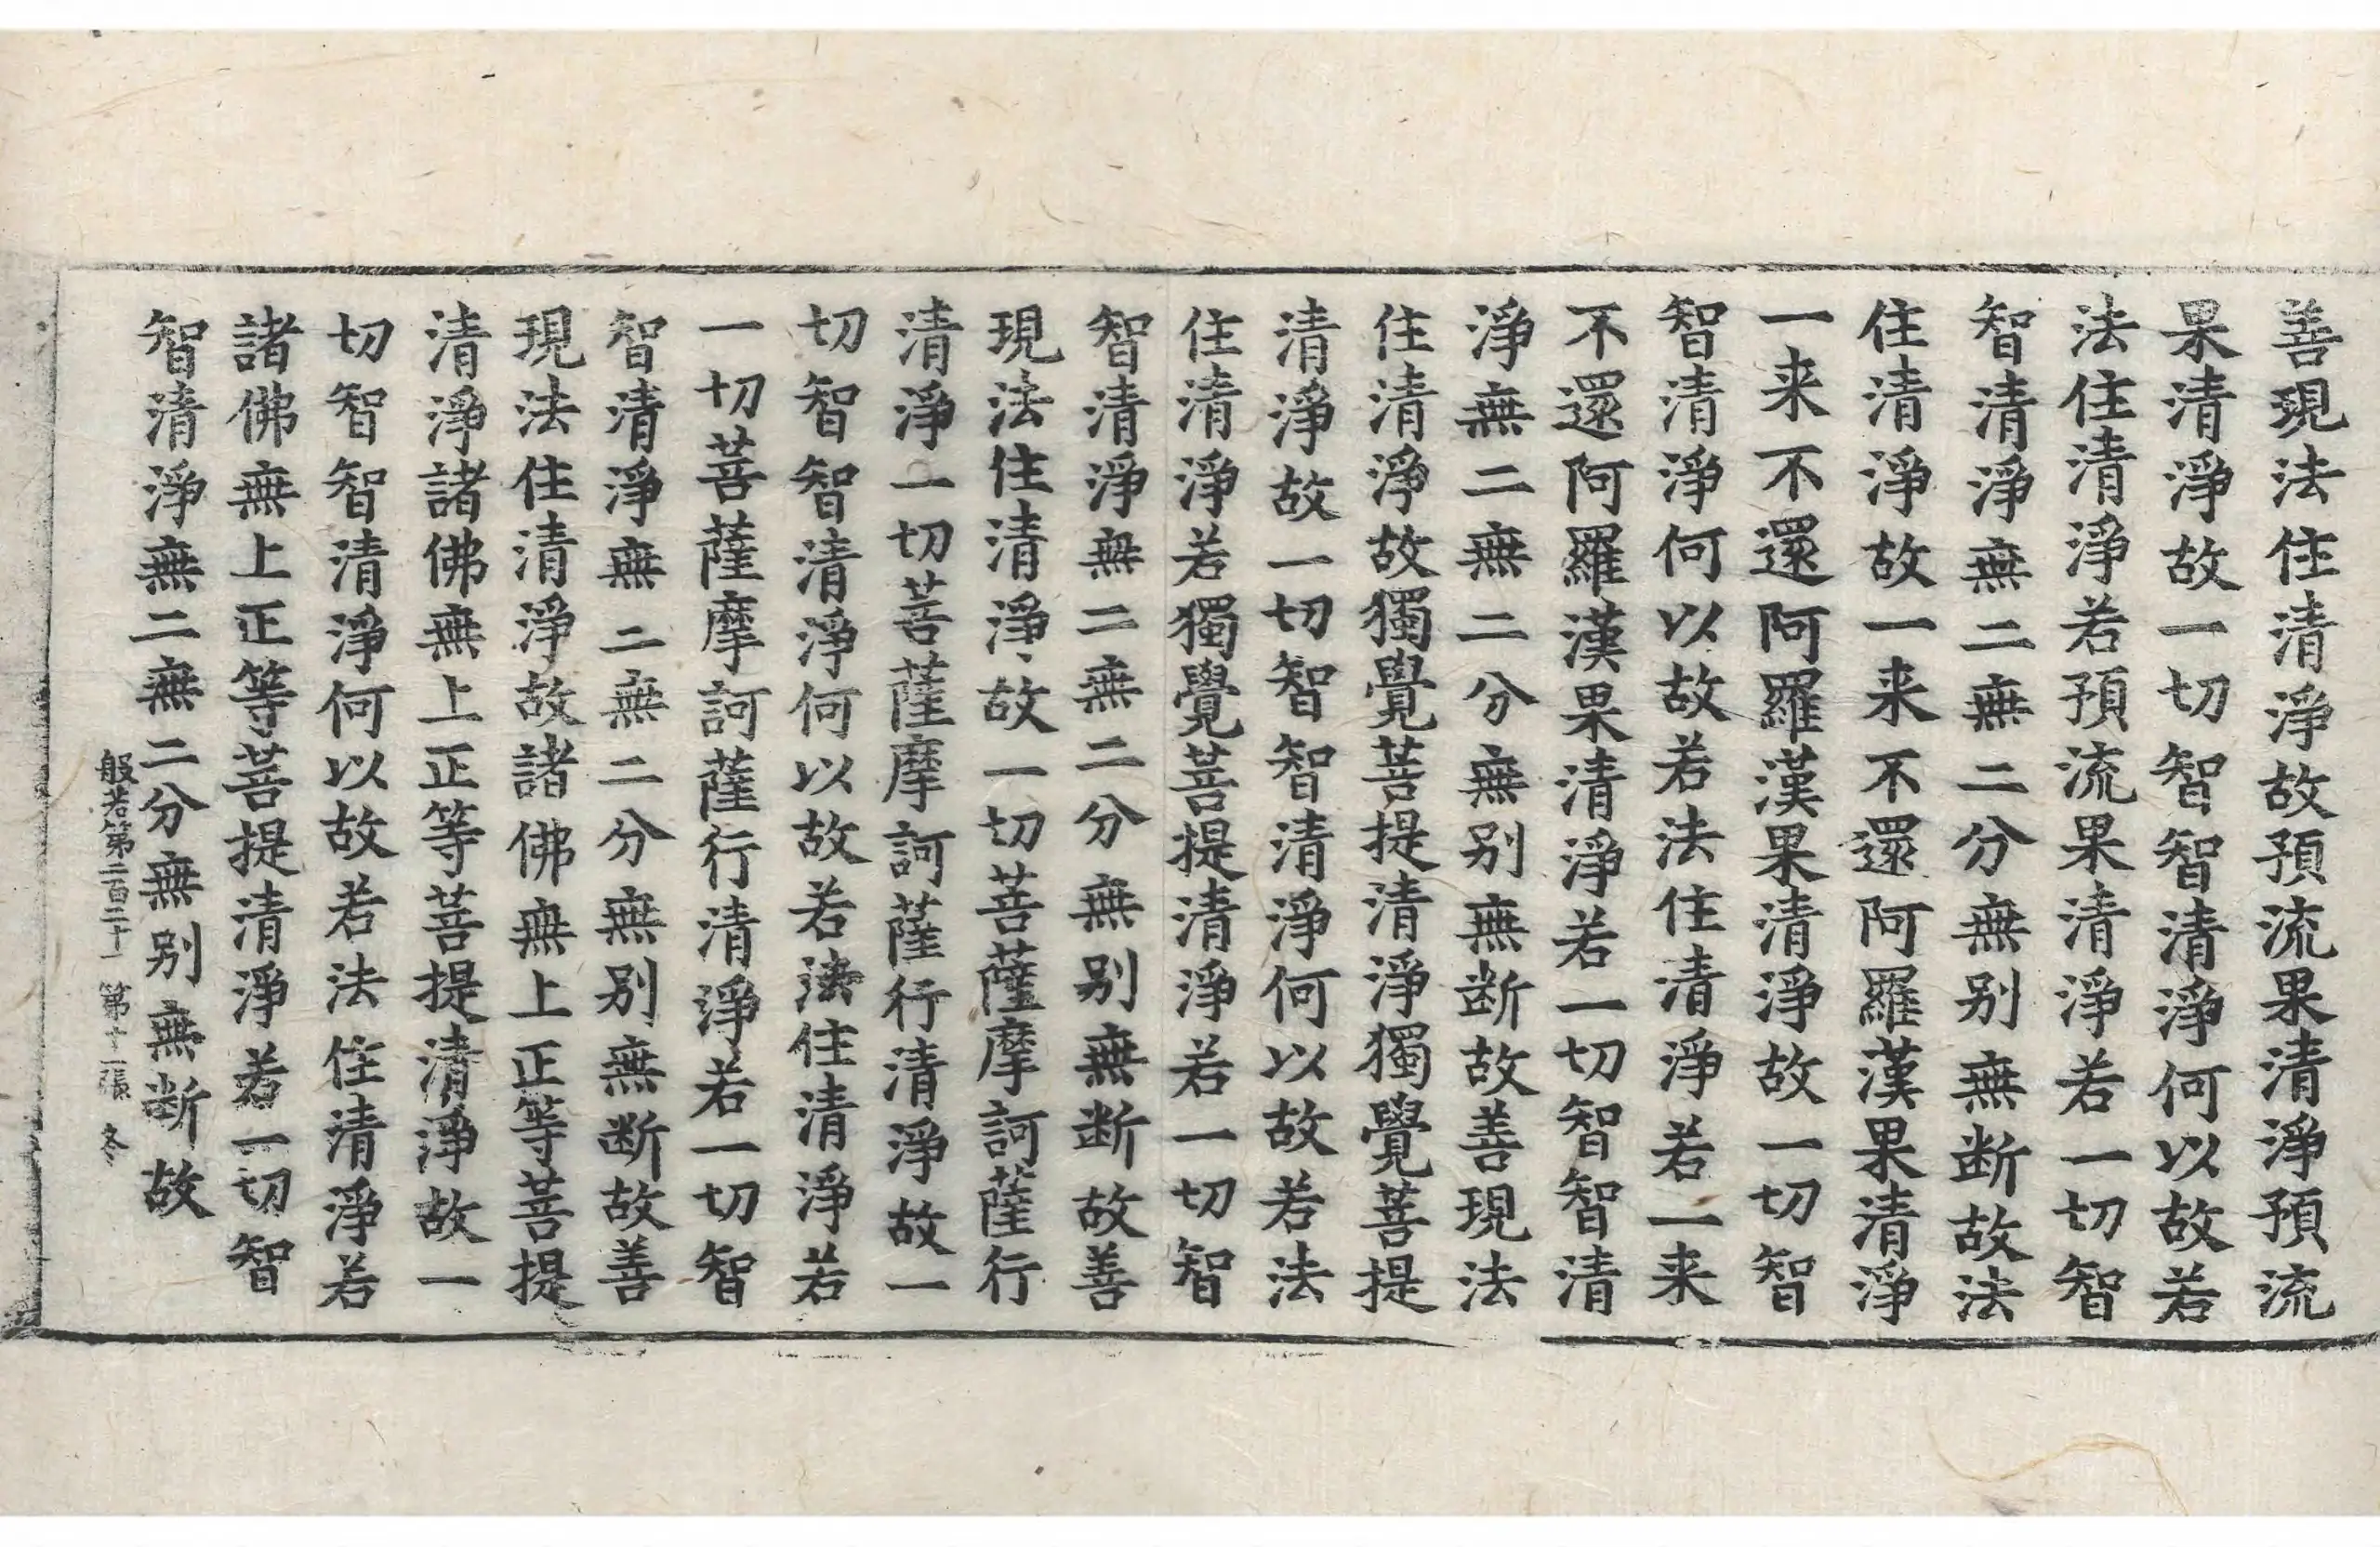 善現法住清淨故預流果清淨預流
果清淨故一切智智清淨何以故若
法住清淨若預流果清淨若一切智
智清淨無二無二分無别無断故法
住清淨故一来不還阿羅漢果清淨
一来不還阿羅漢果清淨故一切智
智清淨何以故若法住清淨若一来
不還阿羅漢果清淨若一切智智清
淨無二無二分無别無断故善現法
住清淨故獨覺菩提清淨獨覺菩提
清淨故一切智智清淨何以故若法
住清淨若獨覺菩提清淨若一切智
智清淨無二無二分無别無断故善
現法住清淨故一切菩薩摩訶薩行
清淨一切菩薩摩訶薩行清淨故一
切智智清淨何以故若法住清淨若
一切菩薩摩訶薩行清淨若一切智
智清淨無二無二分無别無断故善
現法住清淨故諸佛無上正等菩提
清淨諸佛無上正等菩提清淨故一
切智智清淨何以故若法住清淨若
諸佛無上正等菩提清淨若一切智
智清淨無二無二分無别無断故
般若第二百二十一 第十二張 冬